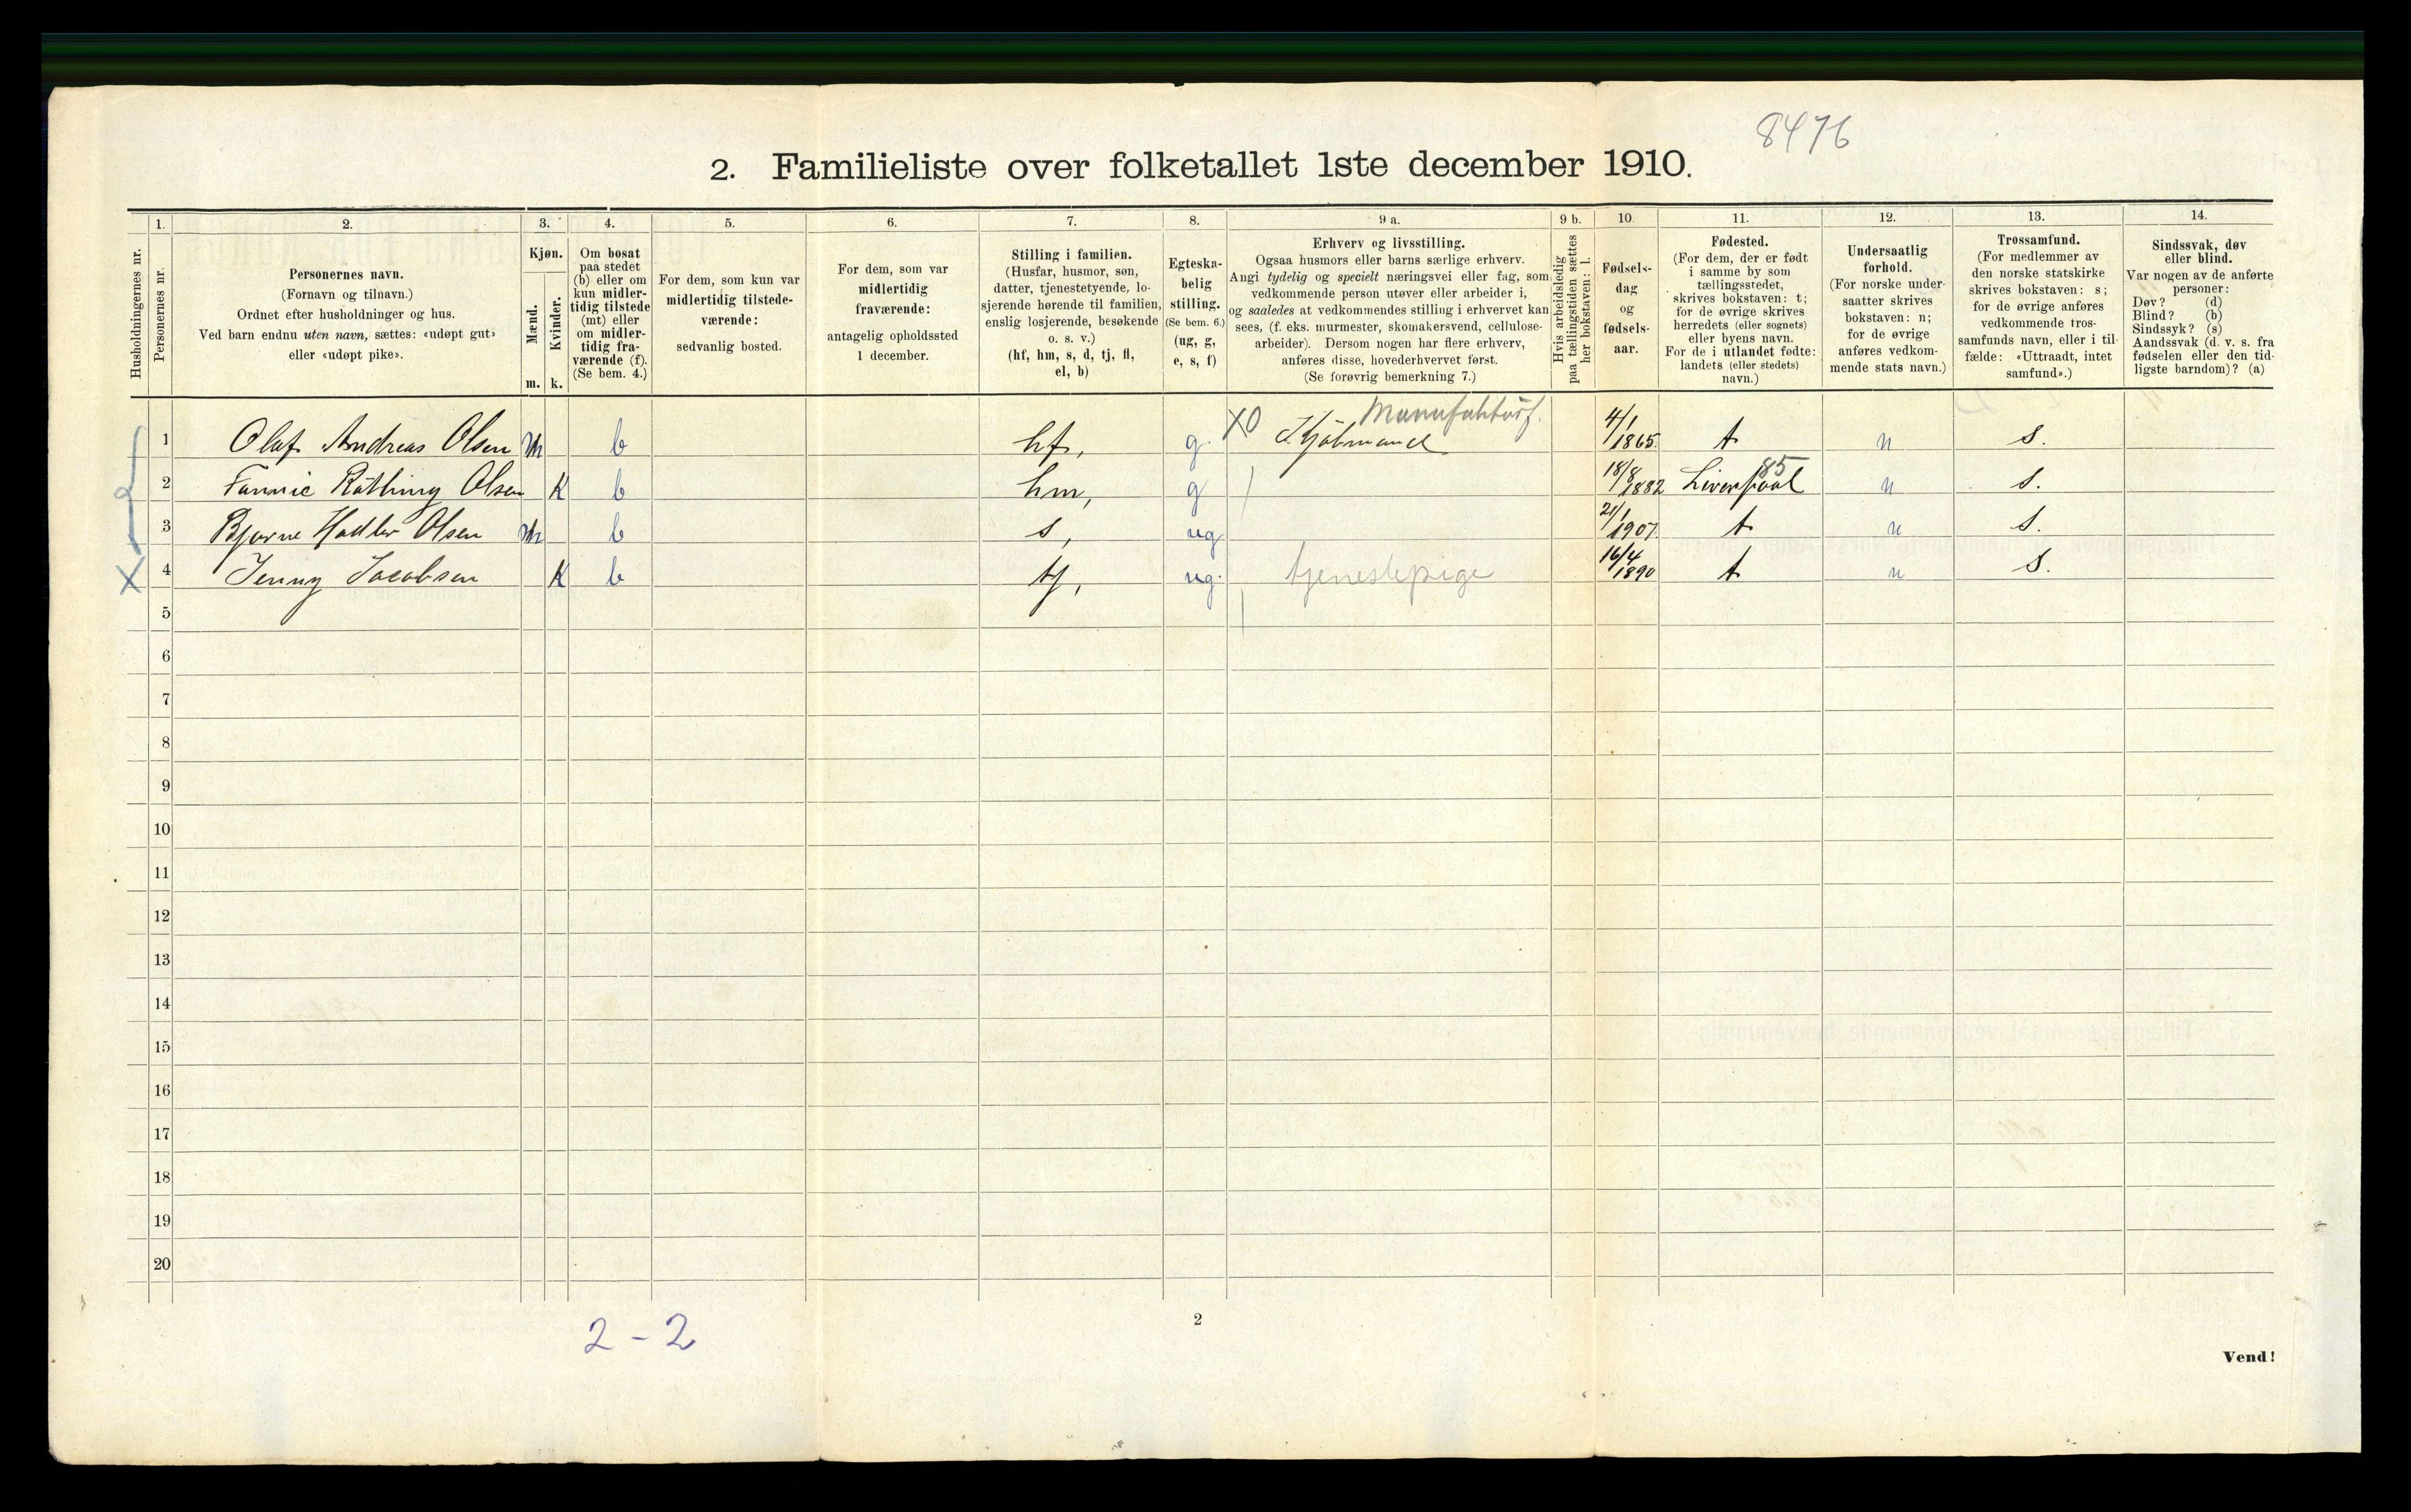 8476
2. Familieliste over folketallet 1ste december 1910.
Husholdningernes nr.
1.
Personernes nr.
2.
Personernes navn.
(Fornavn og tilnavn.)
Ordnet efter husholdninger og hus.
Ved barn endnu uten navn, sættes: «udøpt gut»
eller «udøpt pike».
3.
Kjøn.
Mænd.
Kvinder.
m.
k.
4.
Om bosat
paa stedet
(b) eller om
kun midler-
tidig tilstede
(mt) eller
om midler-
tidig fra-
værende (f).
(Se bem. 4.)
5.
For dem, som kun var
midlertidig tilstede-
værende:
sedvanlig bosted.
6.
For dem, som var
midlertidig
fraværende:
antagelig opholdssted
1 december.
7.
Stilling i familien.
(Husfar, husmor, søn,
datter, tjenestetyende, lo-
sjerende hørende til familien,
enslig losjerende, besøkende
o. s. v.)
(hf, hm, s, d, tj, fl,
el, b)
8.
Egteska-
belig
stilling.
(Se bem. 6.)
(ug, g,
e, s, f)
9 a.
Erhverv og livsstilling.
Ogsaa husmors eller barns særlige erhverv.
Angi tydelig og specielt næringsvei eller fag, som
vedkommende person utøver eller arbeider i,
og saaledes at vedkommendes stilling i erhvervet kan
sees, (f. eks. murmester, skomakersvend, cellulose-
arbeider). Dersom nogen har flere erhverv,
anføres disse, hovederhvervet først.
(Se forøvrig bemerkning 7.)
9 b.
Hvis arbeidsledig
paa tællingstiden sættes
her bokstaven: l.
10.
Fødsels-
dag
og
fødsels-
aar.
11.
Fødested.
(For dem, der er født
i samme by som
tællingsstedet,
skrives bokstaven: t;
for de øvrige skrives
herredets (eller sognets)
eller byens navn.
For de i utlandet fødte:
landets (eller stedets)
navn.)
12.
Undersaatlig
forhold.
(For norske under-
saatter skrives
bokstaven: n;
for de øvrige
anføres vedkom-
mende stats navn.)
13.
Trossamfund.
(For medlemmer av
den norske statskirke
skrives bokstaven: s;
for de øvrige anføres
vedkommende tros-
samfunds navn, eller i til-
fælde: «Uttraadt, intet
samfund».)
14.
Sindssvak, døv
eller blind.
Var nogen av de anførte
personer:
Døv? (d)
Blind? (b)
Sindssyk? (s)
Aandssvak (d. v. s. fra
fødselen eller den tid-
ligste barndom)? (a)
1 Olaf Andreas Olsen m b hf, g. X0 Kjøbmand Manufakturf. 4/1 1865 t n s.
2 Fannie Olsen K b hm, g 18/8 1882 Liverpool 85 n s.
3 Bjarne Olsen m b s, ug 21/1 1907 t n s.
X 4 Jenny Jacobsen K b tj, ug. tjenestepige 16/4 1890 t n s.
5
6
7
8
9
10
11
12
13
14
15
16
17
18
19
20
2 - 2
2
Vend!